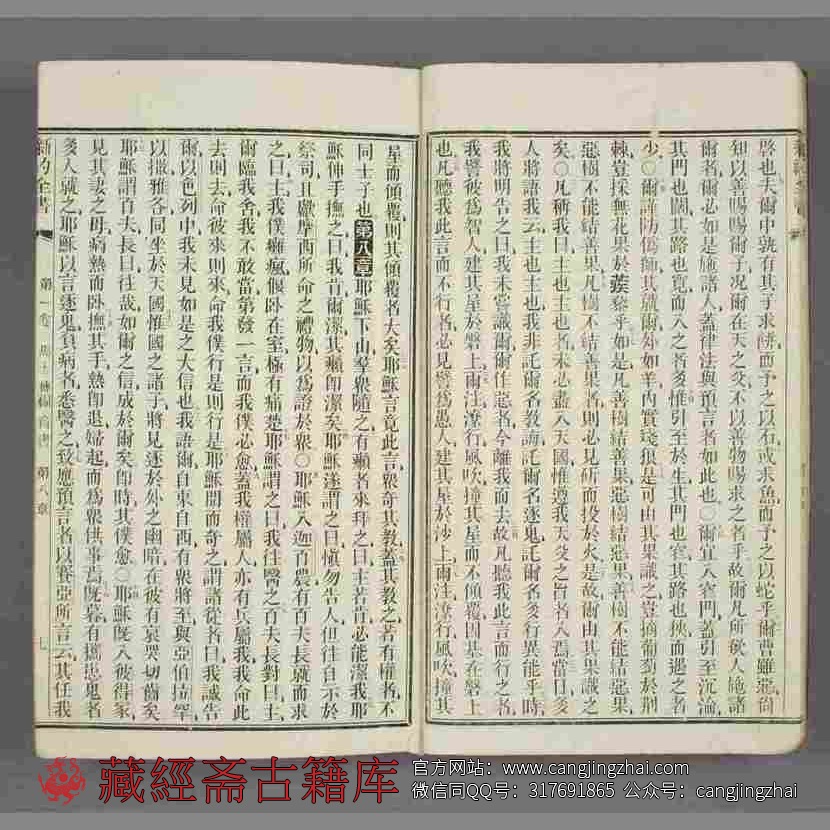 啓也夫爾中孰有其子求餅而予之以石或求魚而予之以蛇乎爾曹雖惡尙
知以善賜賜爾子况爾在天之父不以善物賜求之者乎故爾凡所欲人施諸
爾者爾必如是施諸人蓋律法與預言者如此也○爾宜入窄門蓋引至沉淪
其門也闊其路也寬而入之者多惟引至於生其門也窄其路也狹而遇之者
少○爾謹防僞師其就爾外如羊內實殘狼是可由其果識之豈摘葡萄於荊
棘豈採無花果於蒺藜乎如是凡善樹結善果惡樹結惡果善樹不能結惡果
惡樹不能結善果凡樹不結善果者則必見斫而投於火是故爾由其果識之
矣○凡稱我曰主也主也者未必盡入天國惟遵我天父之旨者入焉當日多
人將語我云主也主也我非託爾名敎誨託爾名逐鬼託爾名多行異能乎時
我將明告之曰我未嘗識爾爾作惡者今離我而去故凡聽我此言而行之者
我譬彼爲智人建其屋於磐上雨注潦行風吹撞其屋而不傾覆因基在磐上
也凡聽我此言而不行者必見譬爲愚人建其屋於沙上雨注潦行風吹撞其
屋而傾覆則其傾覆者大矣耶穌言竟此言衆奇其敎蓋其敎之者有權者不
同士子也第八章耶穌下山羣衆隨之有癩者來拜之曰主若肯必能潔我耶
穌伸手撫之曰我肯爾潔其癩卽潔矣耶穌遂謂之曰愼勿告人但往自示於
祭司且獻摩西所命之禮物以爲證於衆○耶穌入迦百農有百夫長就而求
之曰主我僕癱瘋偃臥在室極有痛楚耶穌謂之曰我往醫之百夫長對曰主
爾臨我舍我不敢當第發一言而我僕必愈蓋我權屬人亦有兵屬我我命此
去則去命彼來則來命我僕行是則行是耶穌聞而奇之謂諸從者曰我誠告
爾以色列中我未見如是之大信也我語爾自東自西有衆將至與亞伯拉罕
以撒雅各同坐於天國惟國之諸子將見逐於外之幽暗在彼有哀哭切齒矣
耶穌謂百夫長曰往哉如爾之信成於爾矣卽時其僕愈○耶穌旣入彼得家
見其妻之母病熱而臥撫其手熱卽退婦起而爲衆供事焉旣暮有攜患鬼者
多人就之耶穌以言逐鬼負病者悉醫之致應預言者以賽亞所言云其任我
新約全書 第一卷 馬太傳福音書 第八章 七
藏經斋古籍库
官方网站：www.cangjingzhai.com
微信同QQ号：317691865 公众号：cangjingzhai